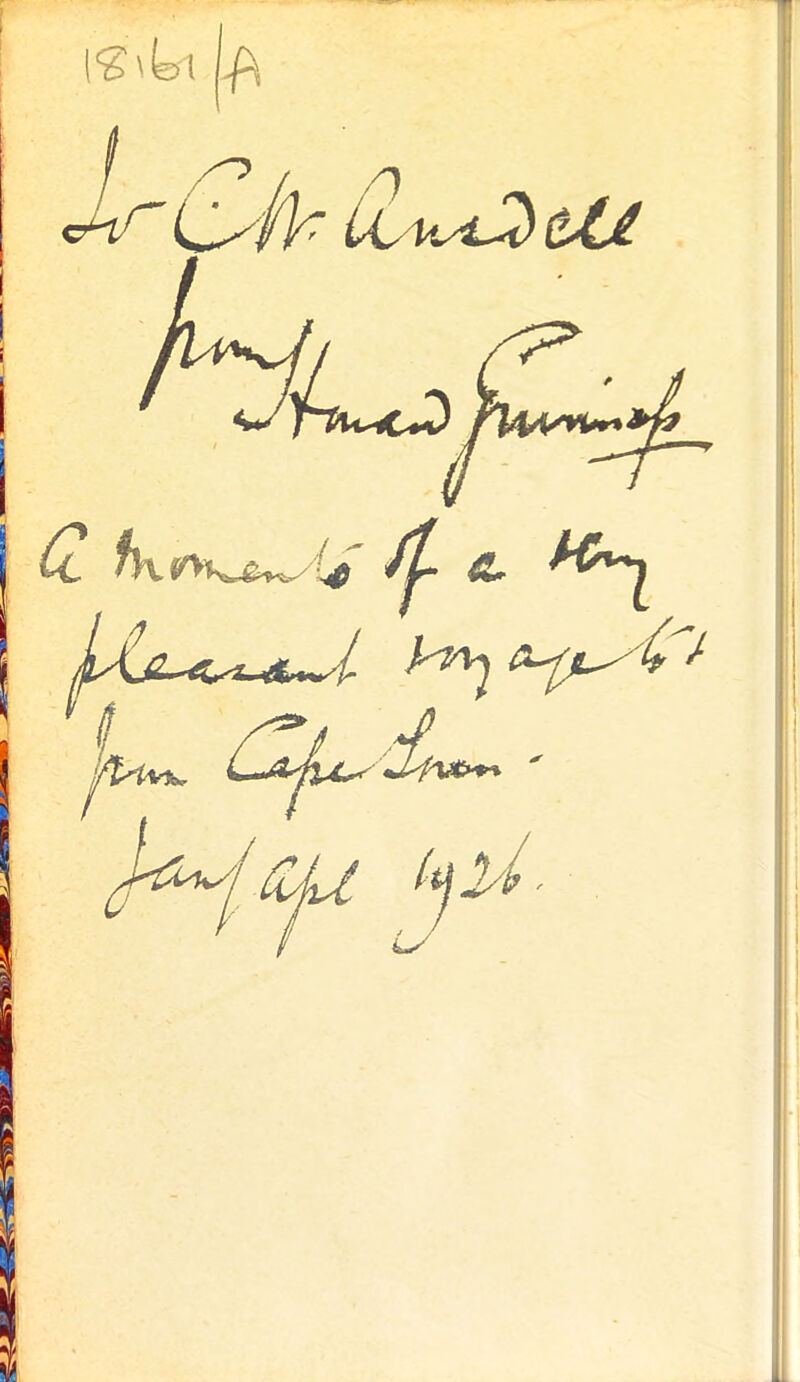 18161/A
To C.W. Ansdell
from
Howard Guinness
A momento of a very
pleasant voyage to &
from Cape Town -
Jany/Apl 1926.